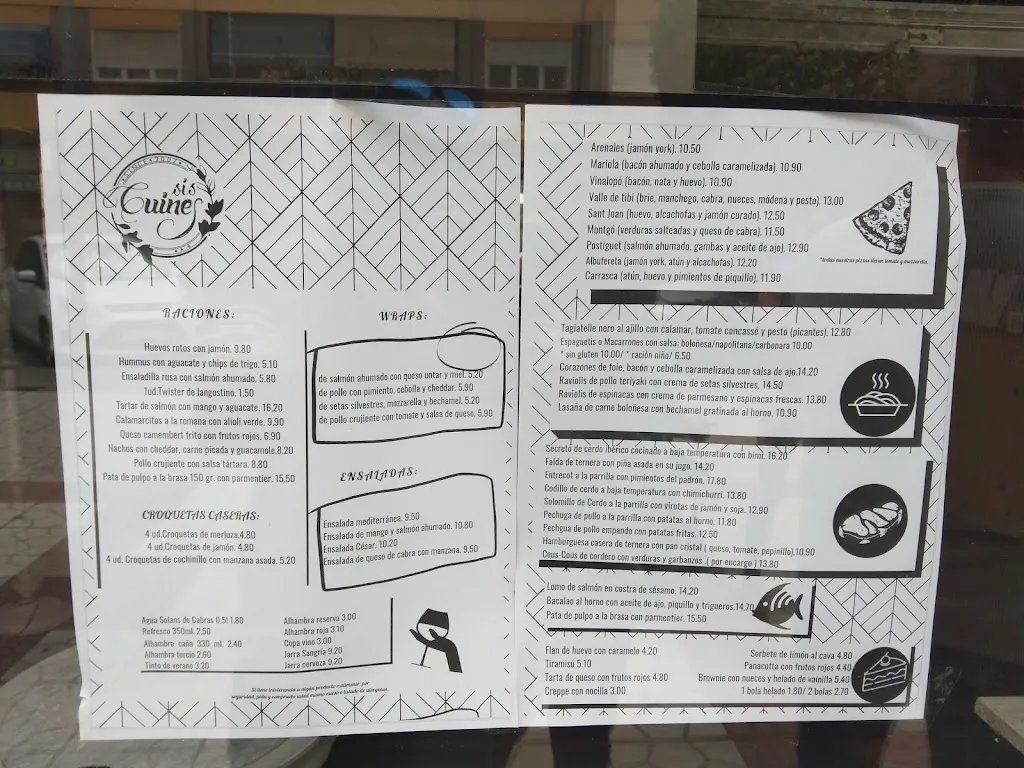 SINCE 2007
sis
Cuines
RACIONES:
Huevos rotos con jamón. 9.80
Hummus con aguacate y chips de trigo. 5,10
Ensaladilla rusa con salmón ahumado. 5.80
1ud.Twister de langostino. 1.50
Tartar de salmón con mango y aguacate. 16,20
Calamarcitos a la romana con alioli verde. 9.90
Queso camembert frito con frutos rojos. 6.90
Nachos con cheddar, carne picada y guacamole.8.20
Pollo crujiente con salsa tártara. 8.80
Pata de pulpo a la brasa 150 gr. con parmentier. 15.50
CROQUETAS CASERAS:
4 ud.Croquetas de merluza.4.80
4 ud.Croquetas de jamón. 4.80
4 ud. Croquetas de cochinillo con manzana asada. 5.20
WRAPS:
de salmón ahumado con queso untar y miel. 5.20
de pollo con pimiento, cebolla y cheddar. 5.90
de setas silvestres, mozzarella y bechamel. 5.20
de pollo crujiente con tomate y salsa de queso. 5.90
ENSALADAS:
Ensalada mediterránea. 9.50
Ensalada de mango y salmón ahumado. 10.80
Ensalada César. 10.20
Ensalada de queso de cabra con manzana. 9.50
Agua Solans de Cabras 0,5l 1.80
Refresco 350ml. 2.50
Alhambra caña 330 ml. 2.40
Alhambra tercio 2.60
Tinto de verano 3.20
Alhambra reserva 3.00
Alhambra roja 3.10
Copa vino 3.00
Jarra Sangría 9.20
Jarra cerveza 9.20
Si tiene intolerancia a algún producto o alimento, por
seguridad, pida y compruebe usted mismo nuestro listado de alérgenos.
Arenales (jamón york). 10.50
Mariola (bacón ahumado y cebolla caramelizada). 10.90
Vinalopó (bacón, nata y huevo). 10.90
Valle de tibi (brie, manchego, cabra, nueces, módena y pesto). 13.00
Sant Joan (huevo, alcachofas y jamón curado). 12.50
Montgó (verduras salteadas y queso de cabra). 11.50
Postiguet (salmón ahumado, gambas y aceite de ajo). 12.90
Albufereta (jamón york, atún y alcachofas). 12.20
Carrasca (atún, huevo y pimientos de piquillo). 11.90
*todas nuestras pizzas tienen tomate y mozzarella.
Tagiatelle nero al ajillo con calamar, tomate concassé y pesto (picantes). 12.80
Espaguetis o Macarrones con salsa: boloñesa/napolitana/carbonara 10.00
* sin gluten 10.00/ * ración niño/ 6.50
Corazones de foie, bacón y cebolla caramelizada con salsa de ajo.14.20
Raviolis de pollo teriyaki con crema de setas silvestres. 14.50
Raviolis de espinacas con crema de parmesano y espinacas frescas. 13.80
Lasaña de carne boloñesa con bechamel gratinada al horno. 10.90
Secreto de cerdo ibérico cocinado a baja temperatura con bimi. 16.20
Falda de ternera con piña asada en su jugo. 14.20
Entrecot a la parrilla con pimientos del padrón. 17.80
Codillo de cerdo a baja temperatura con chimichurri. 13.80
Solomillo de Cerdo a la parrilla con virutas de jamón y soja. 12.90
Pechuga de pollo a la parrilla con patatas al horno. 11.80
Pechgua de pollo empando con patatas fritas. 12.50
Hamburguesa casera de ternera con pan cristal ( queso, tomate, pepinillo).10.90
Cous-Cous de cordero con verduras y garbanzos .( por encargo ) 13.80
Lomo de salmón en costra de sésamo. 14.20
Bacalao al horno con aceite de ajo, piquillo y trigueros.14,70
Pata de pulpo a la brasa con parmentier. 15.50
Flan de huevo con caramelo 4.20
Tiramisú 5.10
Tarta de queso con frutos rojos 4.80
Creppe con nocilla 3.00
Sorbete de limón al cava 4.80
Panacotta con frutos rojos 4.40
Brownie con nueces y helado de vainilla 5.40
1 bola helado 1.80/ 2 bolas 2.70